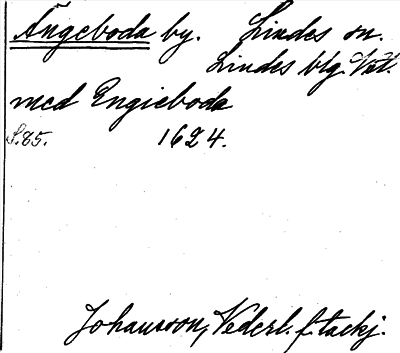 Ängeboda by. Lindes sn.
Lindes blg. Vstl.
med Engieboda
S.85. 1624.
Johansson, Nederl. f. tackj.